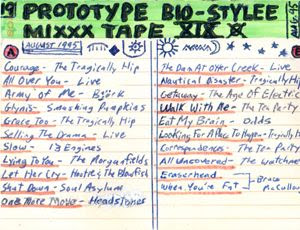 PROTOTYPE BIO-STYLEE
MIXXX TAPE XIX
AUG. 95
A
AUGUST 1995
Courage - The Tragically Hip
All Over You - Live
Army of Me - Björk
Glynis - Smashing Pumpkins
Grace Too - The Tragically Hip
Selling The Drama - Live
Slow - 13 Engines
Lying To You - The Morganfields
Let Her Cry - Hootie & The Blowfish
Shut Down - Soul Asylum
One More Move - Headstones
The Dam At Otter Creek - Live
Nautical Disaster - Tragically Hip
Getaway - The Age Of Electric
Walk With Me - The Tea Party
Eat My Brain - Odds
Looking For A Place To Happen - Tragically Hip
Correspondences - The Tea Party
All Uncovered - The Watchmen
Eraserhead
When You're Fat
Bruce McCulloch